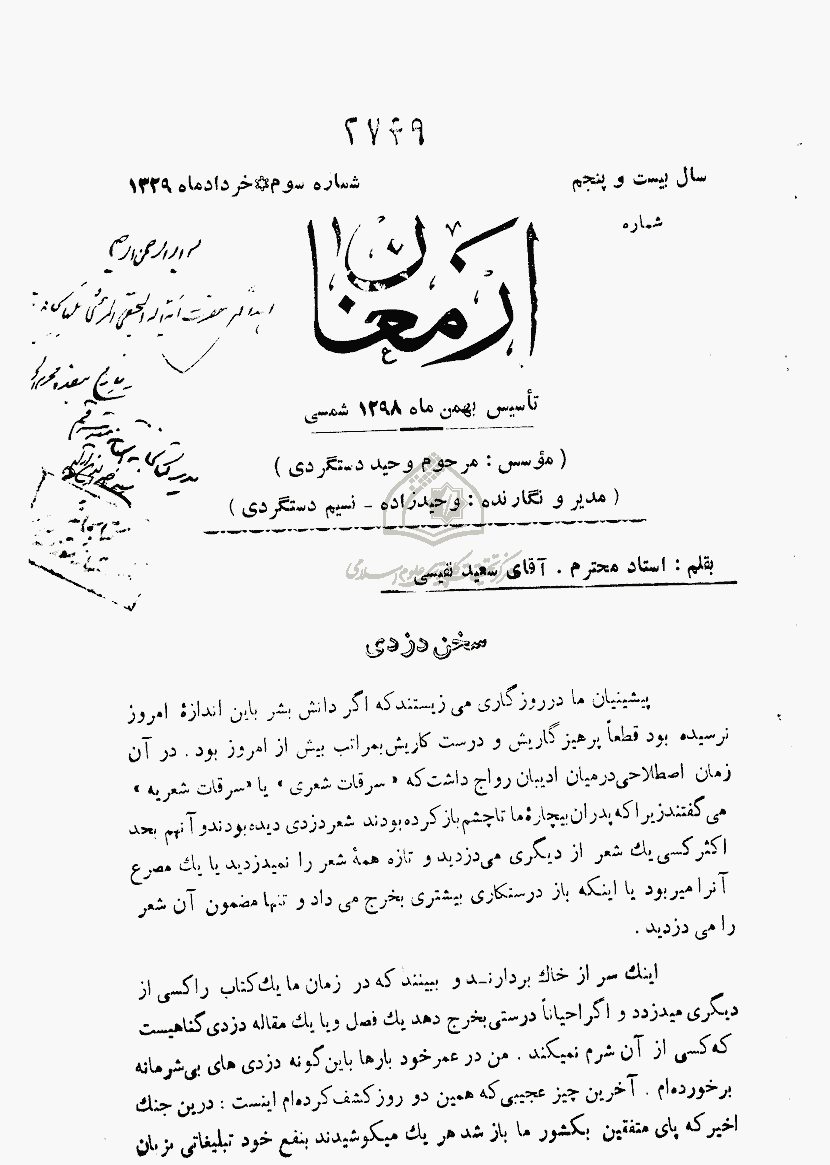 ۲۷۴۹
سال بیست و پنجم
شماره سوم خردادماه ۱۳۲۹
شماره
ارمغان
تأسیس بهمن ماه ۱۲۹۸ شمسی
( مؤسس : مرحوم وحید دستگردی )
( مدیر و نگارنده : وحیدزاده ـ نسیم دستگردی )
بقلم : استاد محترم . آقای سعید نفیسی
سخن دزدی
پیشینیان ما درروزگاری می زیستندکه اگر دانش بشر باین اندازهٔ امروز
نرسیده بود قطعاً پرهیزگاریش و درست کاریش بمراتب بیش از امروز بود . در آن
زمان اصطلاحی درمیان ادیبان رواج داشت که « سرقات شعری » یا «سرقات شعریه »
می گفتندزیرا که پدران بیچارهٔ ما تاچشم باز کرده بودند شعر دزدی دیده بودندو آنهم بحد
اکثر کسی یك شعر از دیگری می دزدید و تازه همهٔ شعر را نمیدزدید یا یك مصرع
آنرا میربود یا اینکه باز درستکاری بیشتری بخرج می داد و تنها مضمون آن شعر
را می دزدید .
اینك سر از خاك بردارنـد و ببینند که در زمان ما یك کتاب را کسی از
دیگری میدزدد و اگر احیاناً درستی بخرج دهد یك فصل ویا یك مقاله دزدی گناهیست
که کسی از آن شرم نمیکند . من در عمر خود بارها باین گونه دزدی های بی شرمانه
برخورده‌ام . آخرین چیز عجیبی که همین دو روز کشف کرده‌ام اینست : درین جنك
اخیر که پای متفقین بکشور ما باز شد هر یك میکوشیدند بنفع خود تبلیغاتی بزبان